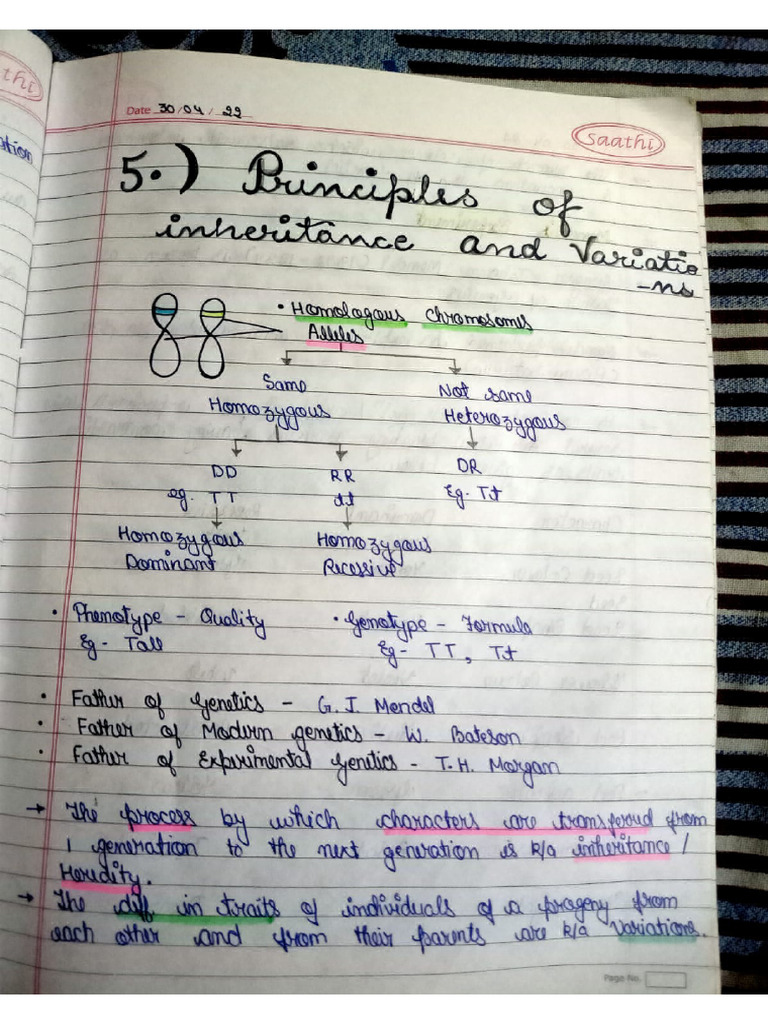 thi
ation
Date 30/04/22
Saathi
5.) Principles of
inheritance and Variatio
-ns
• Homologous Chromosomes
Alleles
Same Not same
Homozygous Heterozygous
DD RR DR
eg. TT tt Eg. Tt
Homozygous Homozygous
Dominant Recessive
• Phenotype - Quality • Genotype - Formula
Eg- Tall Eg- TT, Tt
• Father of Genetics - G. J. Mendel
• Father of Modern genetics - W. Bateson
• Father of Experimental Genetics - T. H. Morgan
→ The process by which characters are transferud from
1 generation to the next generation is k/a inheritance /
Heredity.
→ The diff in traits of individuals of a progeny from
each other and from their parents are k/a Variations.
Page No.